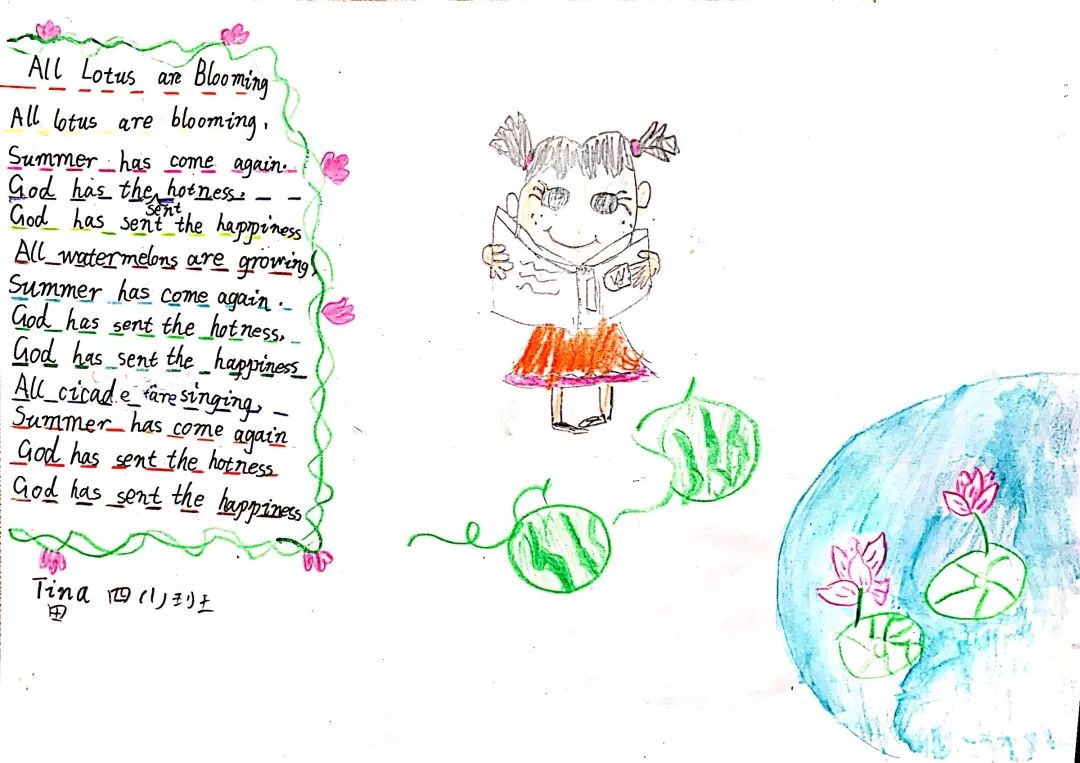 All Lotus are Blooming
All lotus are blooming,
Summer has come again.
God has the hotness,
sent
God has sent the happiness
All watermelons are growing,
Summer has come again.
God has sent the hotness,
God has sent the happiness
All cicade are singing,
Summer has come again
God has sent the hotness
God has sent the happiness
Tina 四(1)班